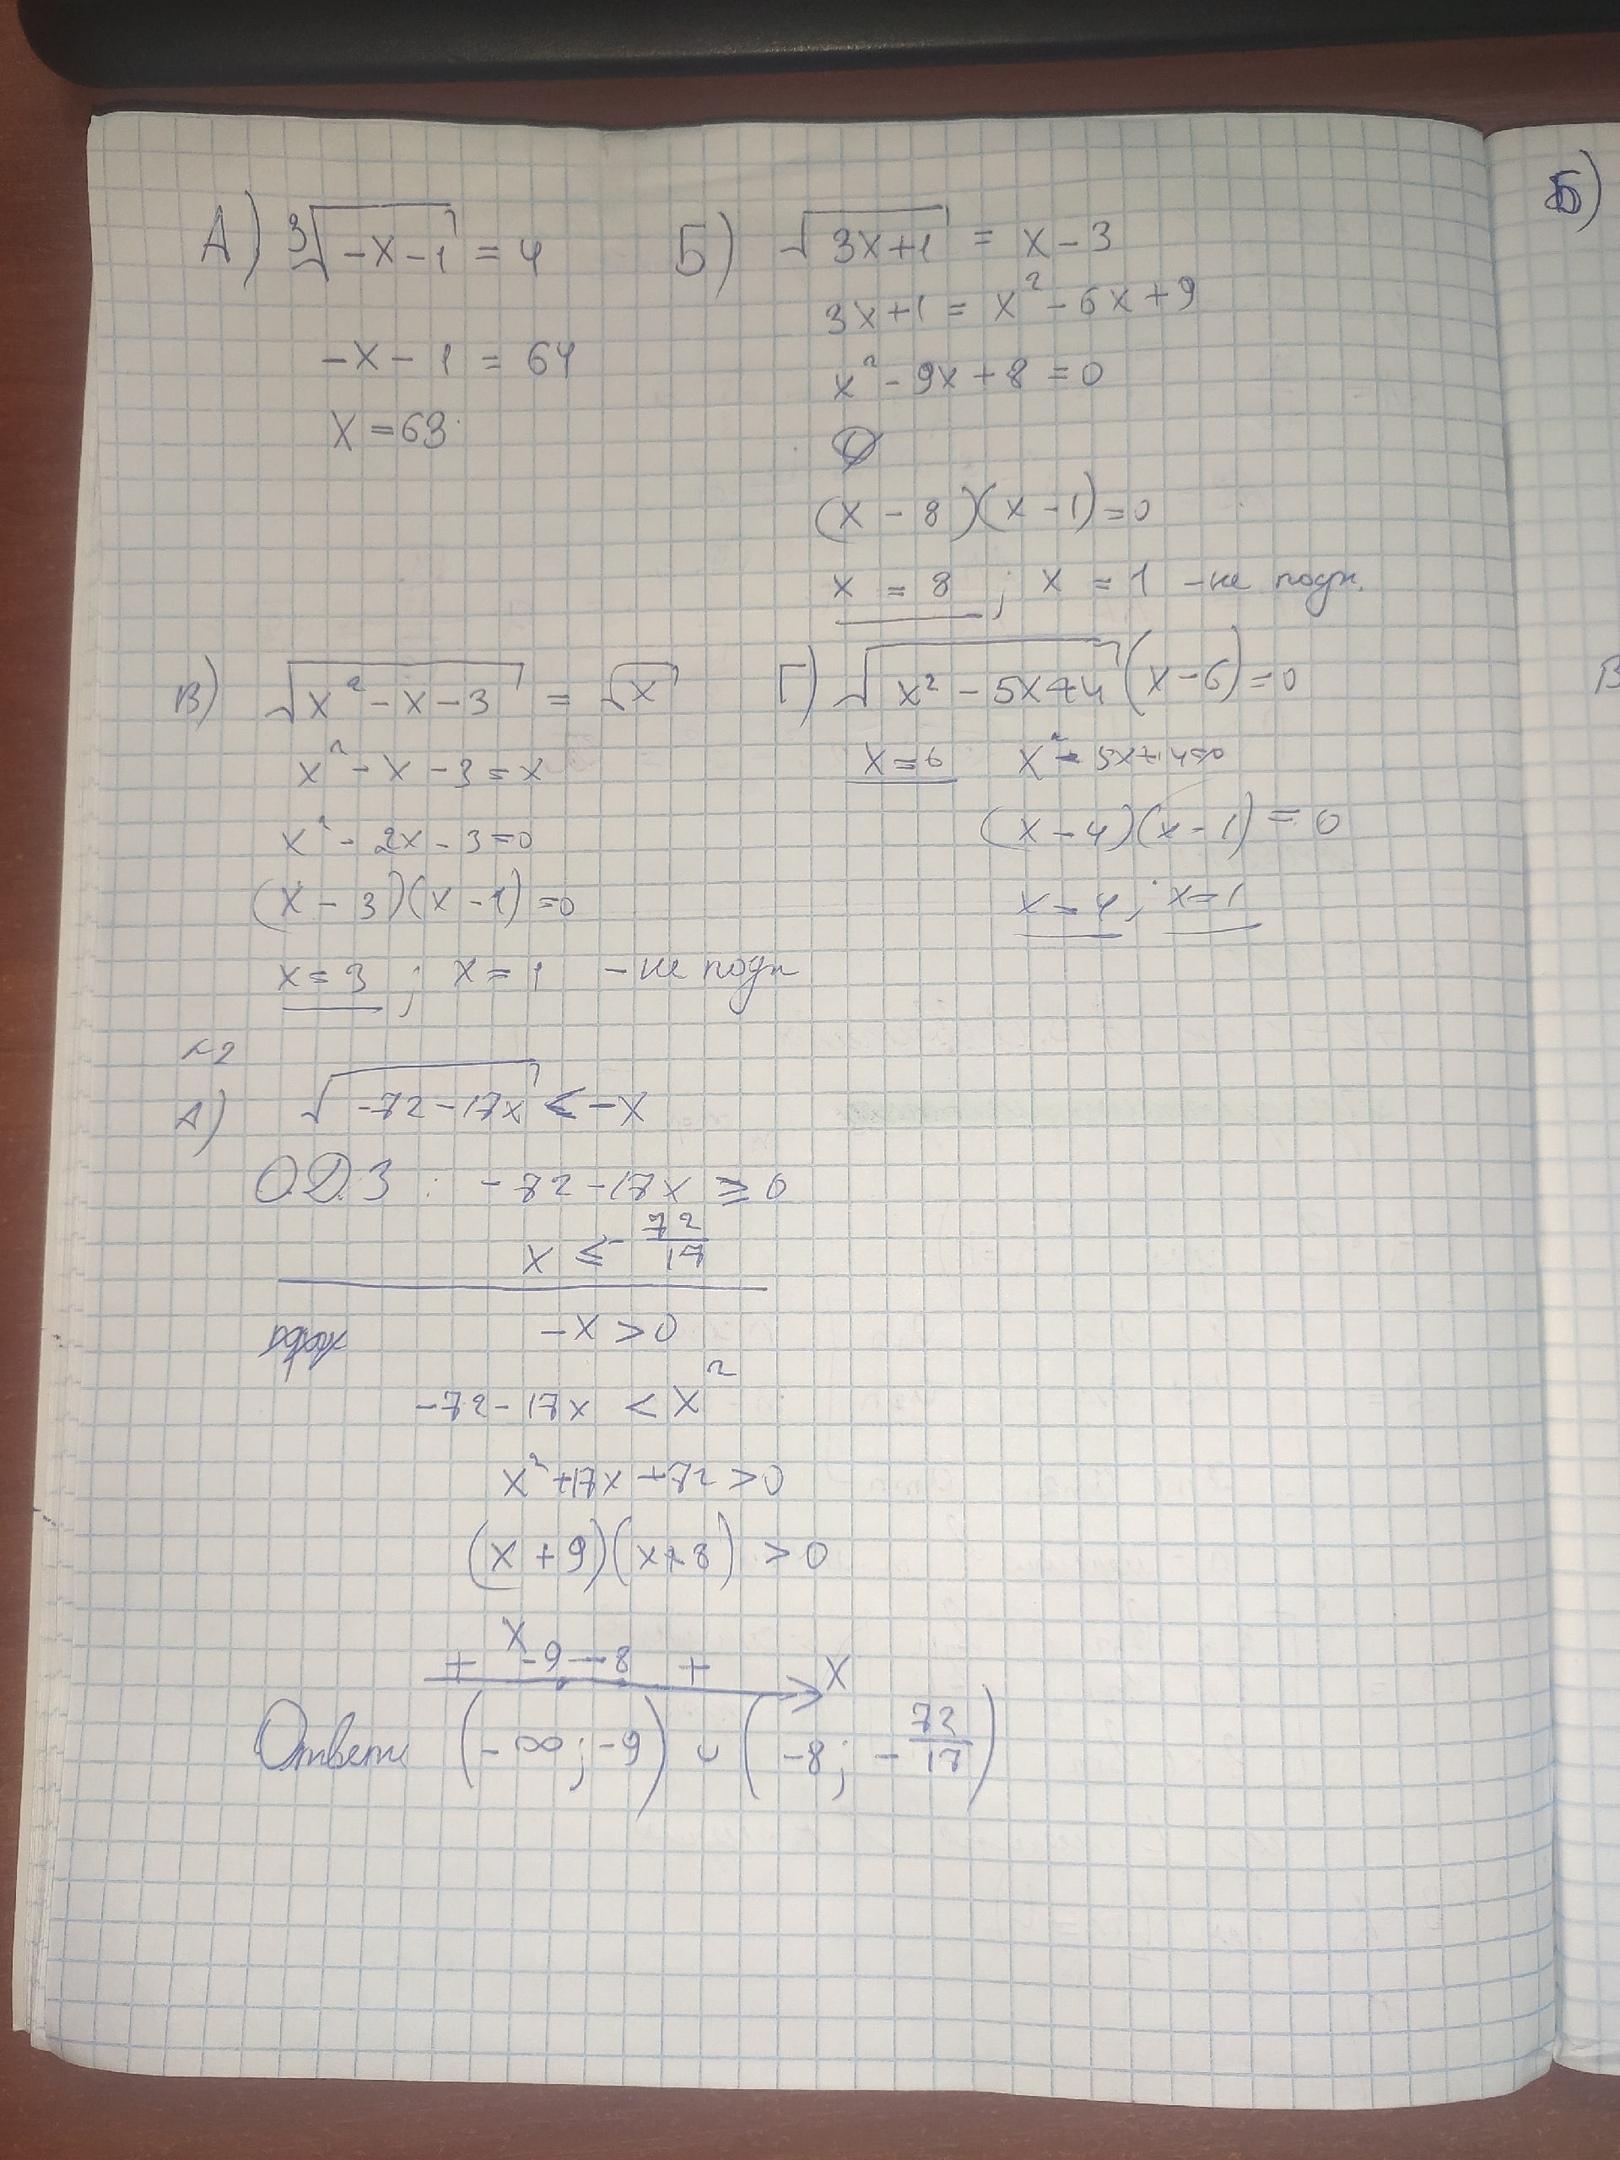 А) ∛(-x-1) = 4
-x - 1 = 64
x = 63
Б) √(3x+1) = x - 3
3x+1 = x² - 6x + 9
x² - 9x + 8 = 0
(x - 8)(x - 1) = 0
x = 8 ; x = 1 - не подх.
В) √(x² - x - 3) = √x
x² - x - 3 = x
x² - 2x - 3 = 0
(x - 3)(x - 1) = 0
x = 3 ; x = 1 - не подх
Г) √(x² - 5x + 4) (x - 6) = 0
x = 6 x² - 5x + 4 = 0
(x - 4)(x - 1) = 0
x = 4 ; x = 1
№2
А) √(-72 - 17x) < -x
О.Д.З : -72 - 17x ≥ 0
x ≤ - 72/17
-x > 0
-72 - 17x < x²
x² + 17x + 72 > 0
(x + 9)(x + 8) > 0
+ -9 - -8 + x
Ответ: (-∞; -9) ∪ (-8; - 72/17)
Б)
В